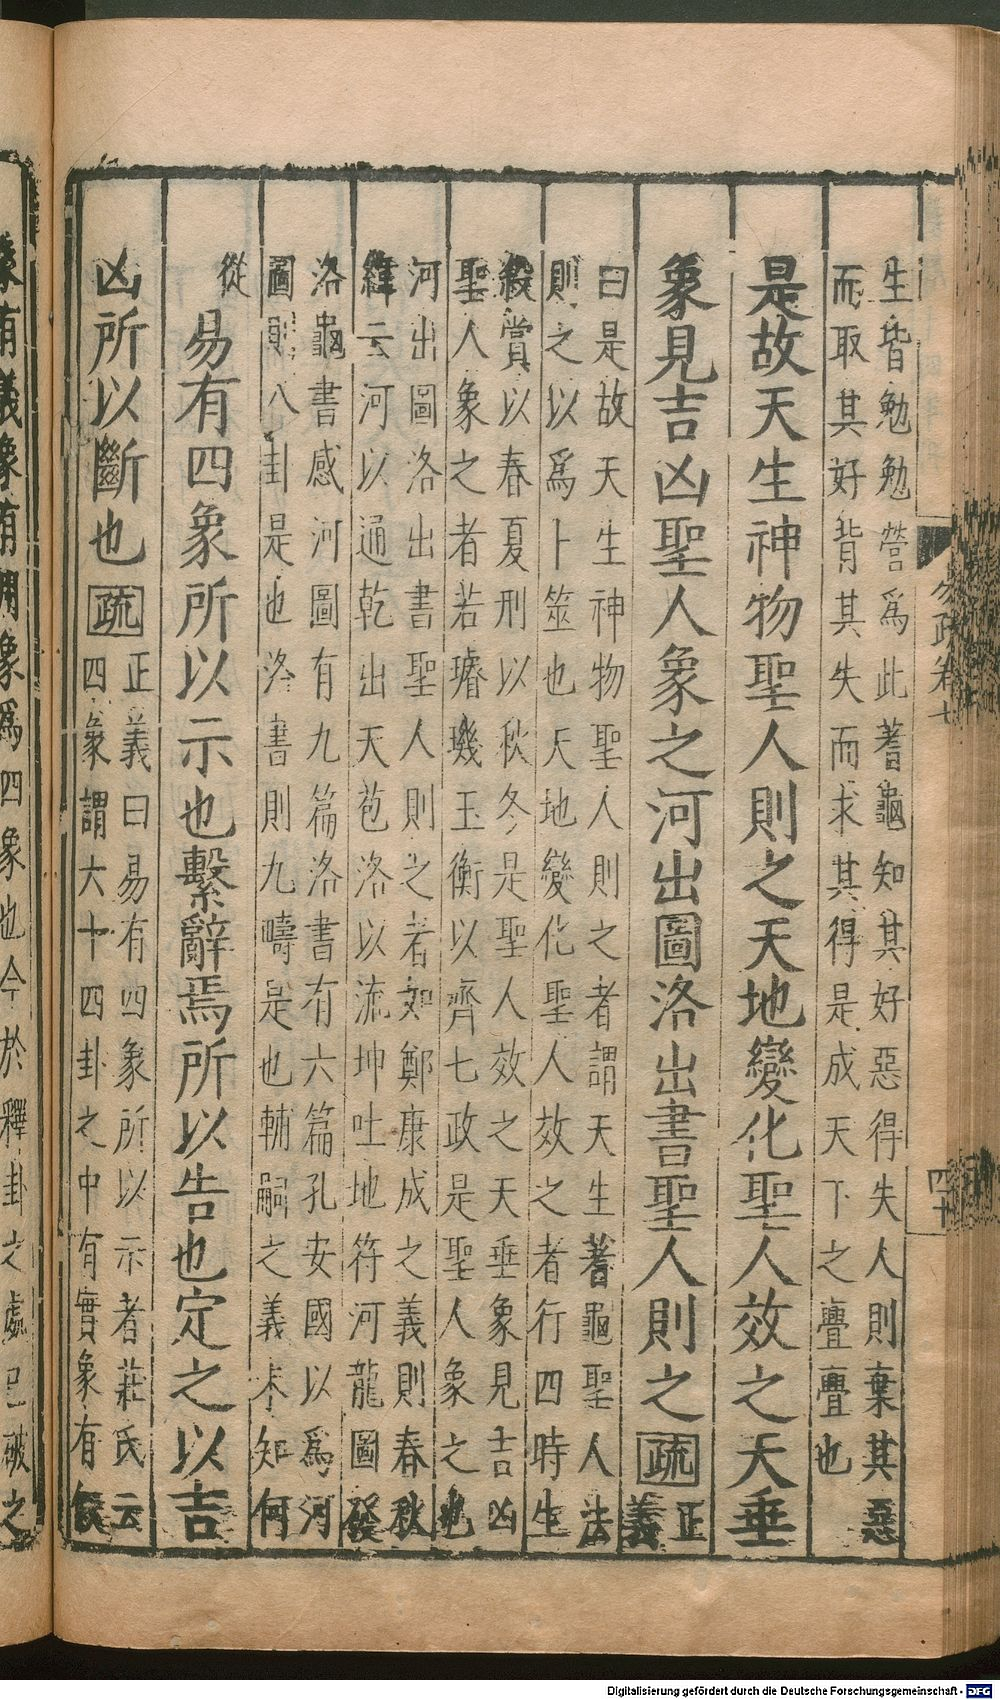 生皆勉勉營爲此蓍龜知其好惡得失人則棄其惡
而取其好背其失而求其得是成天下之亹亹也
是故天生神物聖人則之天地變化聖人效之天垂
象見吉凶聖人象之河出圖洛出書聖人則之疏正
義
曰是故天生神物聖人則之者謂天生蓍龜聖人法
則之以爲卜筮也天地變化聖人效之者行四時生
殺賞以春夏刑以秋冬是聖人效之天垂象見吉凶
聖人象之者若璿璣玉衡以齊七政是聖人象之也
河出圖洛出書聖人則之者如鄭康成之義則春秋
緯云河以通乾出天苞洛以流坤吐地符河龍圖發
洛龜書感河圖有九篇洛書有六篇孔安國以爲河
圖則八卦是也洛書則九疇是也輔嗣之義未知何
從
易有四象所以示也繫辭焉所以告也定之以吉
凶所以斷也疏
正義曰易有四象所以示者莊氏云
四象謂六十四卦之中有實象有假
象有義象有用象爲四象也今於釋卦之處已破之
易疏卷十
四十
Digitalisierung gefördert durch die Deutsche Forschungsgemeinschaft - DFG